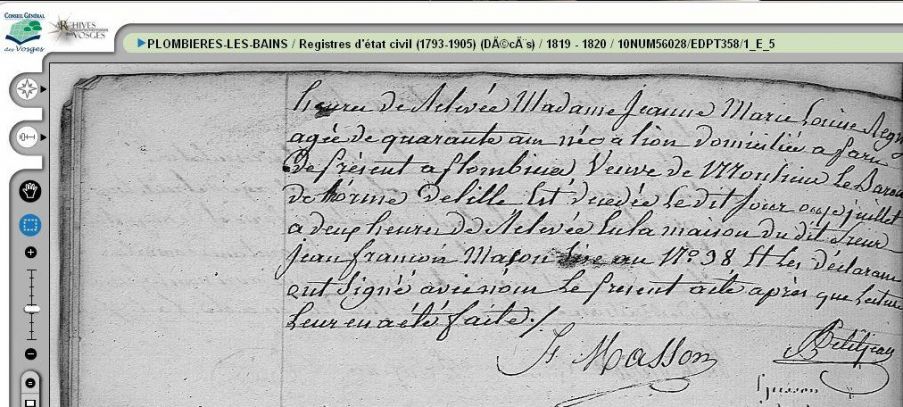 CONSEIL GÉNÉRAL
des Vosges
ARCHIVES
VOSGES
PLOMBIERES-LES-BAINS / Registres d'état civil (1793-1905) (DÃ©cÃ¨s) / 1819 - 1820 / 10NUM56028/EDPT358/1_E_5
heures de Relevée Madame Jeanne Marie Louise Regn
agée de quarante ans née a lion domiciliée a paris
De présent a plombieres Veuve de Monsieur le Baron
de Delille Est décédée le dit jour onze juillet
a deux heures de Relevée En la maison du dit sieur
jean francois Masson sise au N° 38 Et les déclarans
ont Signé avec nous le present acte après que Lecture
Leur en a été faite ./
Jf Masson
Petitjean
husson